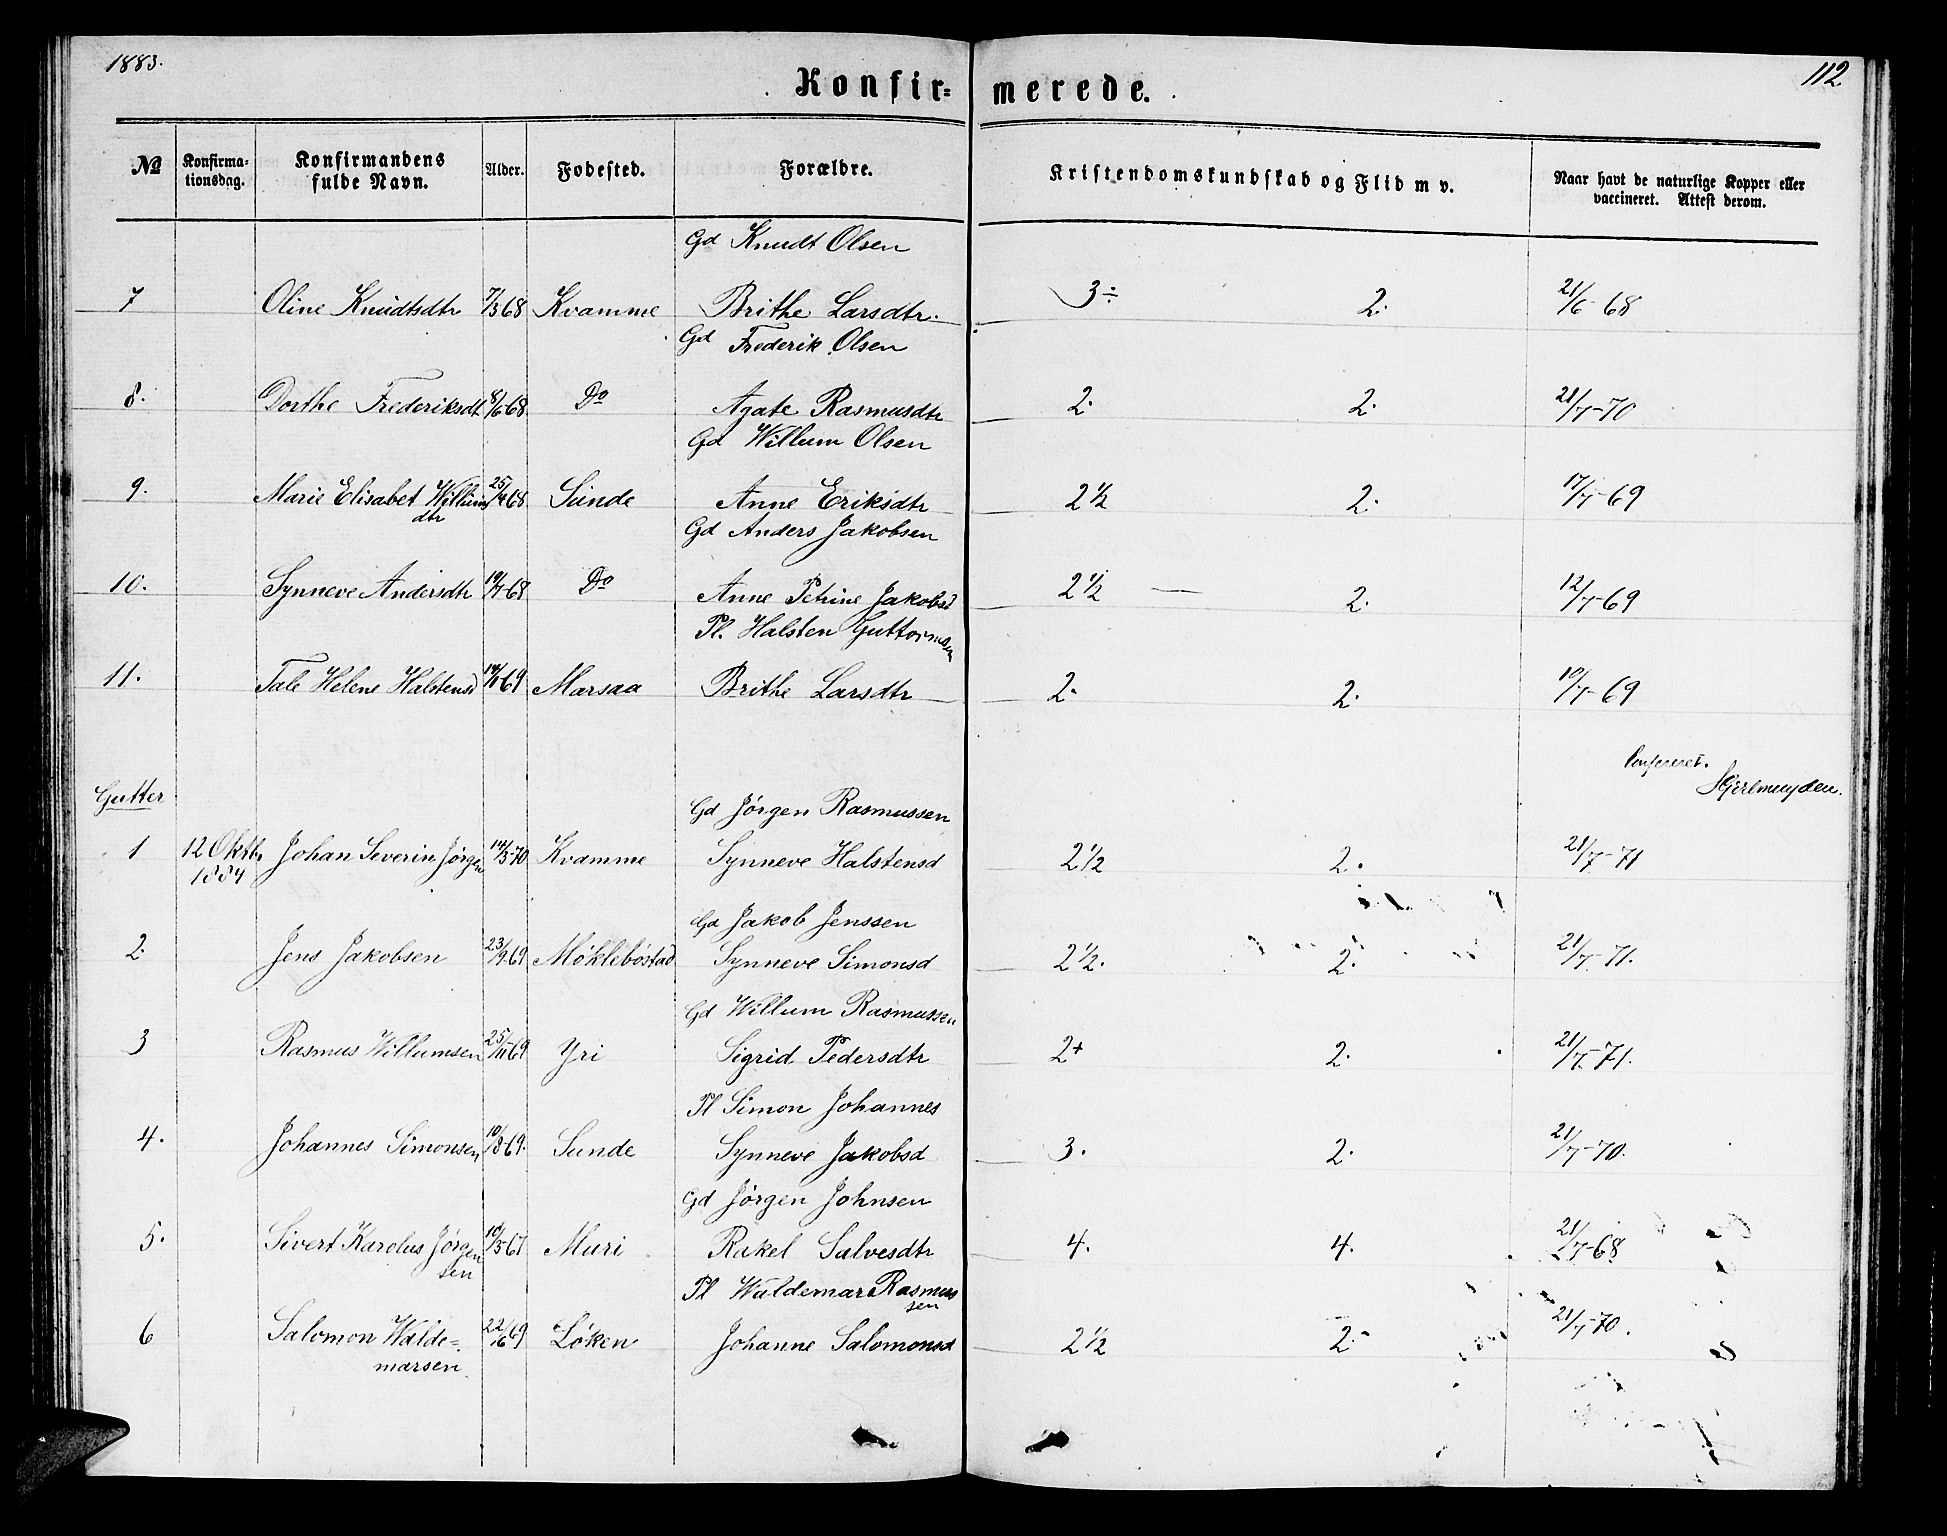 1883.
112
Konfir= merede.
No
Konfirma=
tionsdag.
Konfirmandens
fulde Navn.
Alder.
Fødested.
Forældre.
Kristendomskundskab og Flid m v.
Naar havt de naturlige Kopper eller
vaccineret. Attest derom.
Gd Knudt Olsen
7 Oline Knudtsdtr 7/3 68 Kvamme Brithe Larsdtr. 3÷ 2. 21/6-68
Gd Frederik Olsen
8. Dorthe Frederiksdt 8/6-68 Do Agate Rasmusdtr 2. 2. 21/7-70
Gd Willum Olsen
9. Marie Elisabet Willums 25/4 68 Sunde Anne Eriksdtr 2 1/2 2. 17/7-69
dtr
Gd Anders Jakobsen
10. Synneve Andersdtr 19/7-68 Do Anne Petrine Jakobsd 2 1/2 — 2. 12/7-69
Pl. Halsten Guttormsen
11. Tale Helene Halstensd 69 Marsaa Brithe Larsdtr 2. 2. 10/7-69
Confereret.
Gutter
Gd Jørgen Rasmussen
1 12 Oktbr Johan Severin Jørgen 14/3-70 Kvamme Synneve Halstensd 2 1/2 2. 21/7-71
1884
Gd Jakob Jenssen
2. Jens Jakobsen 23/9-69 Møklebøstad Synneve Simonsd 2 1/2. 2. 21/7-71.
Gd Willum Rasmussen
3 Rasmus Willumsen 25/11-69 Yri Sigrid Pedersdtr 2+ 2. 21/7-71.
Pl Simon Johannes
4. Johannes Simonsen 10/8-69. Sunde Synneve Jakobsd 3. 2. 21/7-70.
Gd Jørgen Johnsen
5. Sivert Karolus Jørgen 10/5-67 Muri Rakel Salvesdtr 4. 4. 21/7-68
sen
Pl Waldemar Rasmus
sen
6 Salomon Walde= 22/6 69 Løken Johanne Salomonsd 2 1/2 2. 21/7-70.
marsen